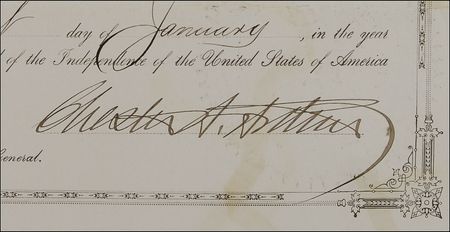 day of January, in the year
of the Independence of the United States of America
Chester A. Arthur
General.